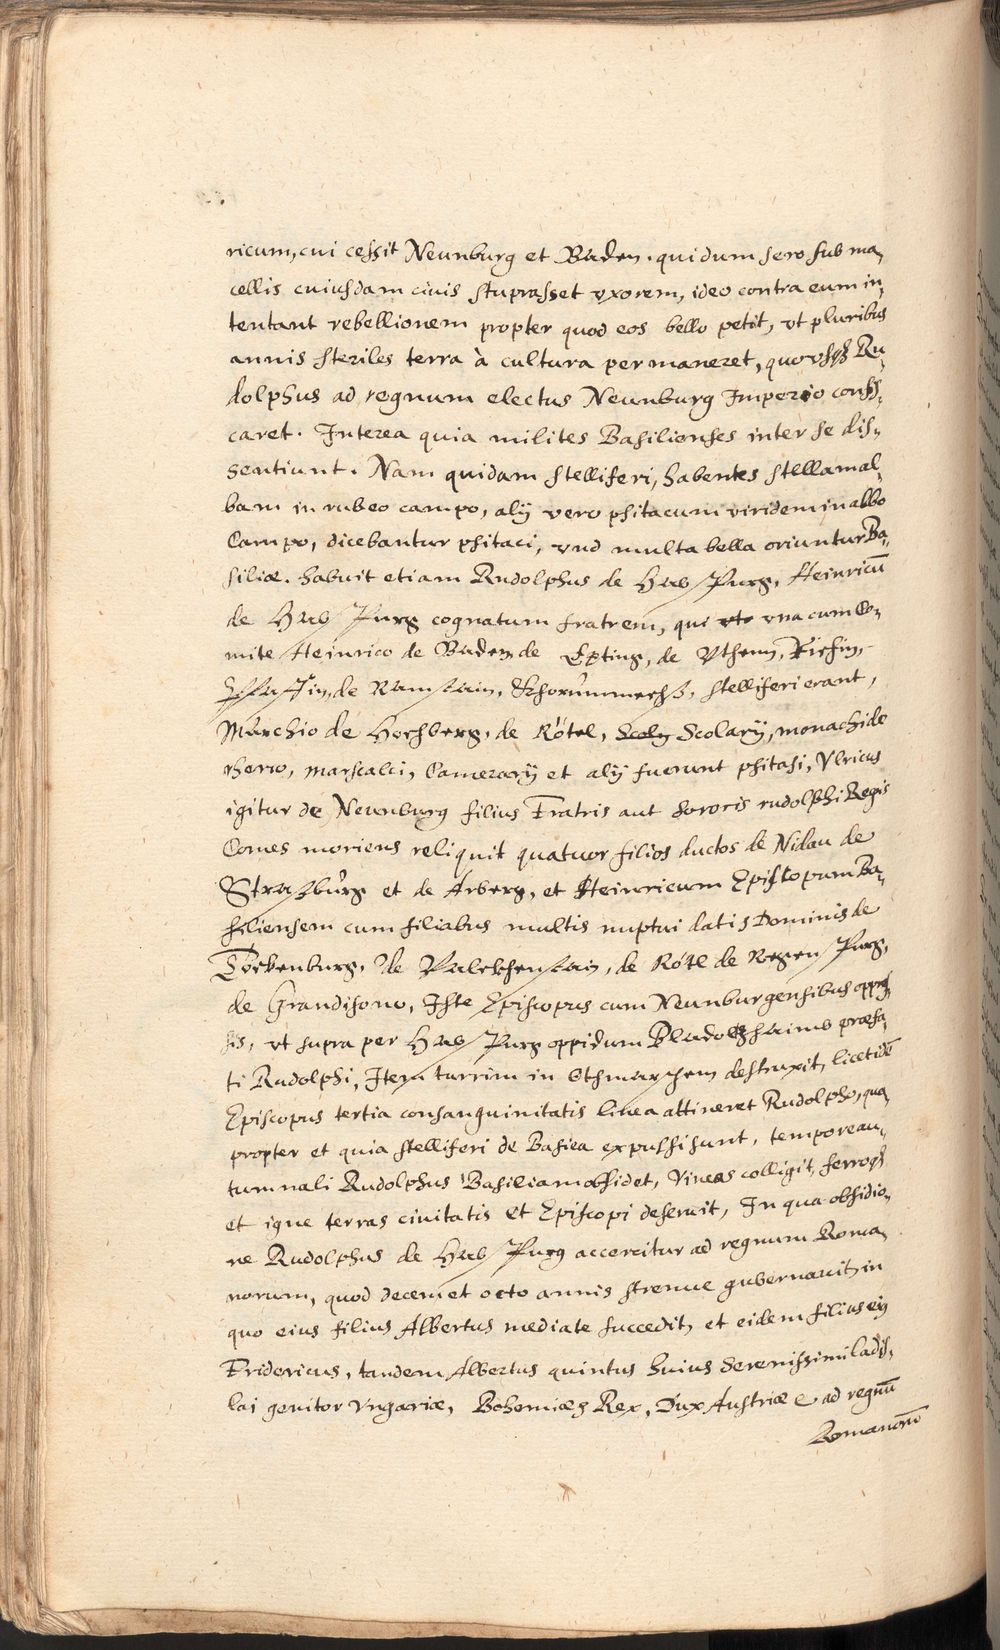 ricum, cui cessit Neunburg et Baden. qui dum sero sub ma,
cellis cuiusdam ciuis stuprasset vxorem, ideo contra eum in,
tentant rebellionem propter quod eos bello petit, vt pluribus
annis steriles terra à cultura permaneret, quo vsq3 Ru,
dolphus ad regnum electus Neunburg Imperio confis,
caret. Interea quia milites Basilienses inter se dis,
sentiunt. Nam quidam stelliferi, habentes stellam al,
bam in rubeo campo, alÿ vero psitacum viridem in albo
Campo, dicebantur psitaci, vnd multa bella oriuntur Ba,
siliæ. habuit etiam Rudolphus de HabsPurg, Heinricū
de HabsPurg cognatum fratrem, qui vna cum Co,
mite Heinrico de Baden, de Epting, de Vthenn,
de Ramstain, stelliferi erant,
Marchio de Hochberg, de Rötel, Scolarÿ, monachi de
rheno, marscalci, Camerarÿ et alÿ fuerunt psitasi, Vlricus
igitur de Neunburg filius Fratris aut sororis rudolphi Regis
Comes moriens reliquit quatuor filios ductos de Nidau de
Straßburg et de Arberg, et Heinricum Episcopum Ba,
siliensem cum filiabus multis nuptui datis Dominis de
Tockenburg, de Valckhenstain, de Rötl de RegensPurg,
de Grandisono, Iste Episcopus cum Neunburgensibus oppres
sis, vt supra per HabsPurg oppidum Bladoltzhaimb præfa,
ti Rudolphi, Item turrim in Othmarshem destruxit, licet idē
Episcopus tertia consanguinitatis linea attineret Rudolpho, qua,
propter et quia stelliferi de Basiea expulsi sunt, tempore au,
tumnali Rudolphus Basiliam obsidet, Vineas colligit, ferroq3
et igne terras ciuitatis et Episcopi deseruit, In qua obsidio,
ne Rudolphus de HabsPurg accercitur ad regnum Roma,
norum, quod decem et octo annis strenue gubernauit, in
quo eius filius Albertus mediate succedit, et eidem filius eius
Fridericus, tandem Albertus quintus huius Serenissimi ladis,
lai genitor Vngariæ, Bohemiæq Rex, Dux Austriæ ad regnū
Romanorū